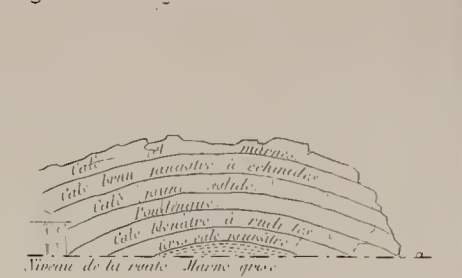 Calc et marnes
Calc brun jaunâtre à echinides
Calc jaune solide
Poudingue
Calc bleuâtre à rudistes
calc jaunâtre
Niveau de la route Marne grise
a